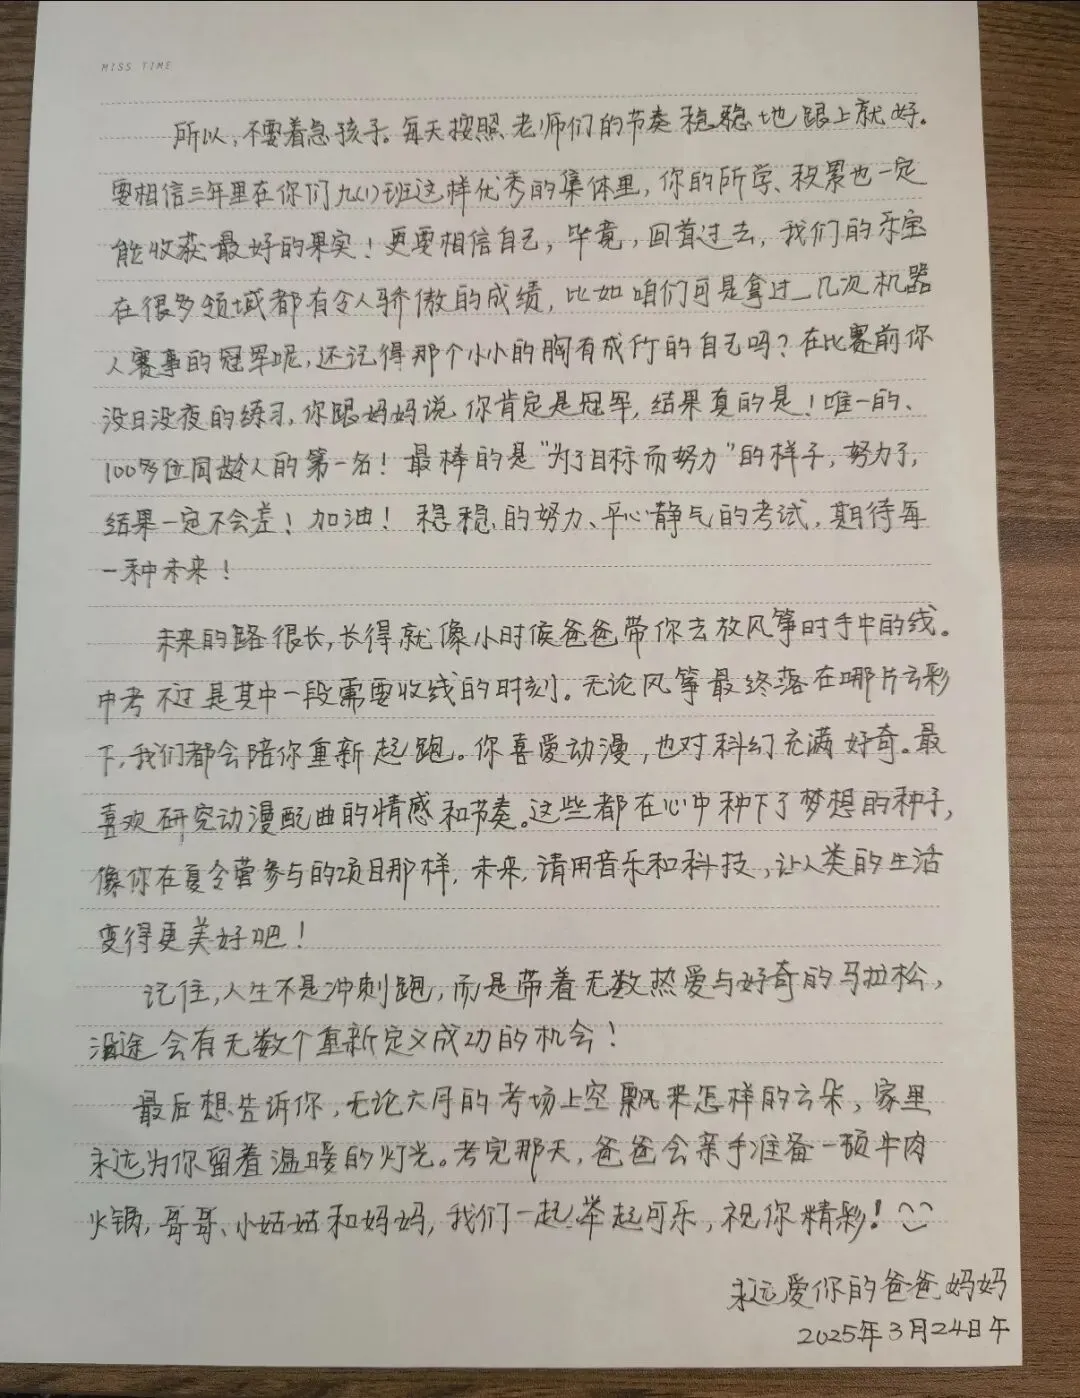 MISS TIME
所以,不要着急孩子。每天按照老师们的节奏稳稳地跟上就好。
要相信三年里在你们九(1)班这样优秀的集体里,你的所学、积累也一定
能收获最好的果实!更要相信自己,毕竟,回首过去,我们的乐宝
在很多领域都有令人骄傲的成绩,比如咱们可是拿过几次机器
人赛事的冠军呢,还记得那个小小的胸有成竹的自己吗?在比赛前你
没日没夜的练习,你跟妈妈说你肯定是冠军,结果真的是!唯一的、
100多位同龄人的第一名!最棒的是"为了目标而努力"的样子,努力了,
结果一定不会差!加油!稳稳的努力、平心静气的考试,期待每
一种未来!
未来的路很长,长得就像小时候爸爸带你去放风筝时手中的线。
中考不过是其中一段需要收线的时刻。无论风筝最终落在哪片云彩
下,我们都会陪你重新起跑。你喜爱动漫,也对科幻充满好奇。最
喜欢研究动漫配曲的情感和节奏。这些都在心中种下了梦想的种子,
像你在夏令营参与的项目那样,未来,请用音乐和科技,让人类的生活
变得更美好吧!
记住,人生不是冲刺跑,而是带着无数热爱与好奇的马拉松,
沿途会有无数个重新定义成功的机会!
最后想告诉你,无论六月的考场上空飘来怎样的云朵,家里
永远为你留着温暖的灯光。考完那天,爸爸会亲手准备一顿牛肉
火锅,哥哥、小姑姑和妈妈,我们一起举起可乐,祝你精彩!
永远爱你的爸爸妈妈
2025年3月24日午